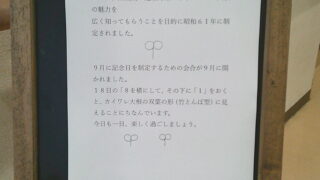 の魅力を
広く知ってもらうことを目的に昭和61年に制
定されました。
9月に記念日を制定するための会合が9月に開
かれました。
18日の「8を横にして、その下に「1」をおく
と、カイワレ大根の双葉の形(竹とんぼ型)に見
えることにちなんでいます。
今日も一日、楽しく過ごしましょう。